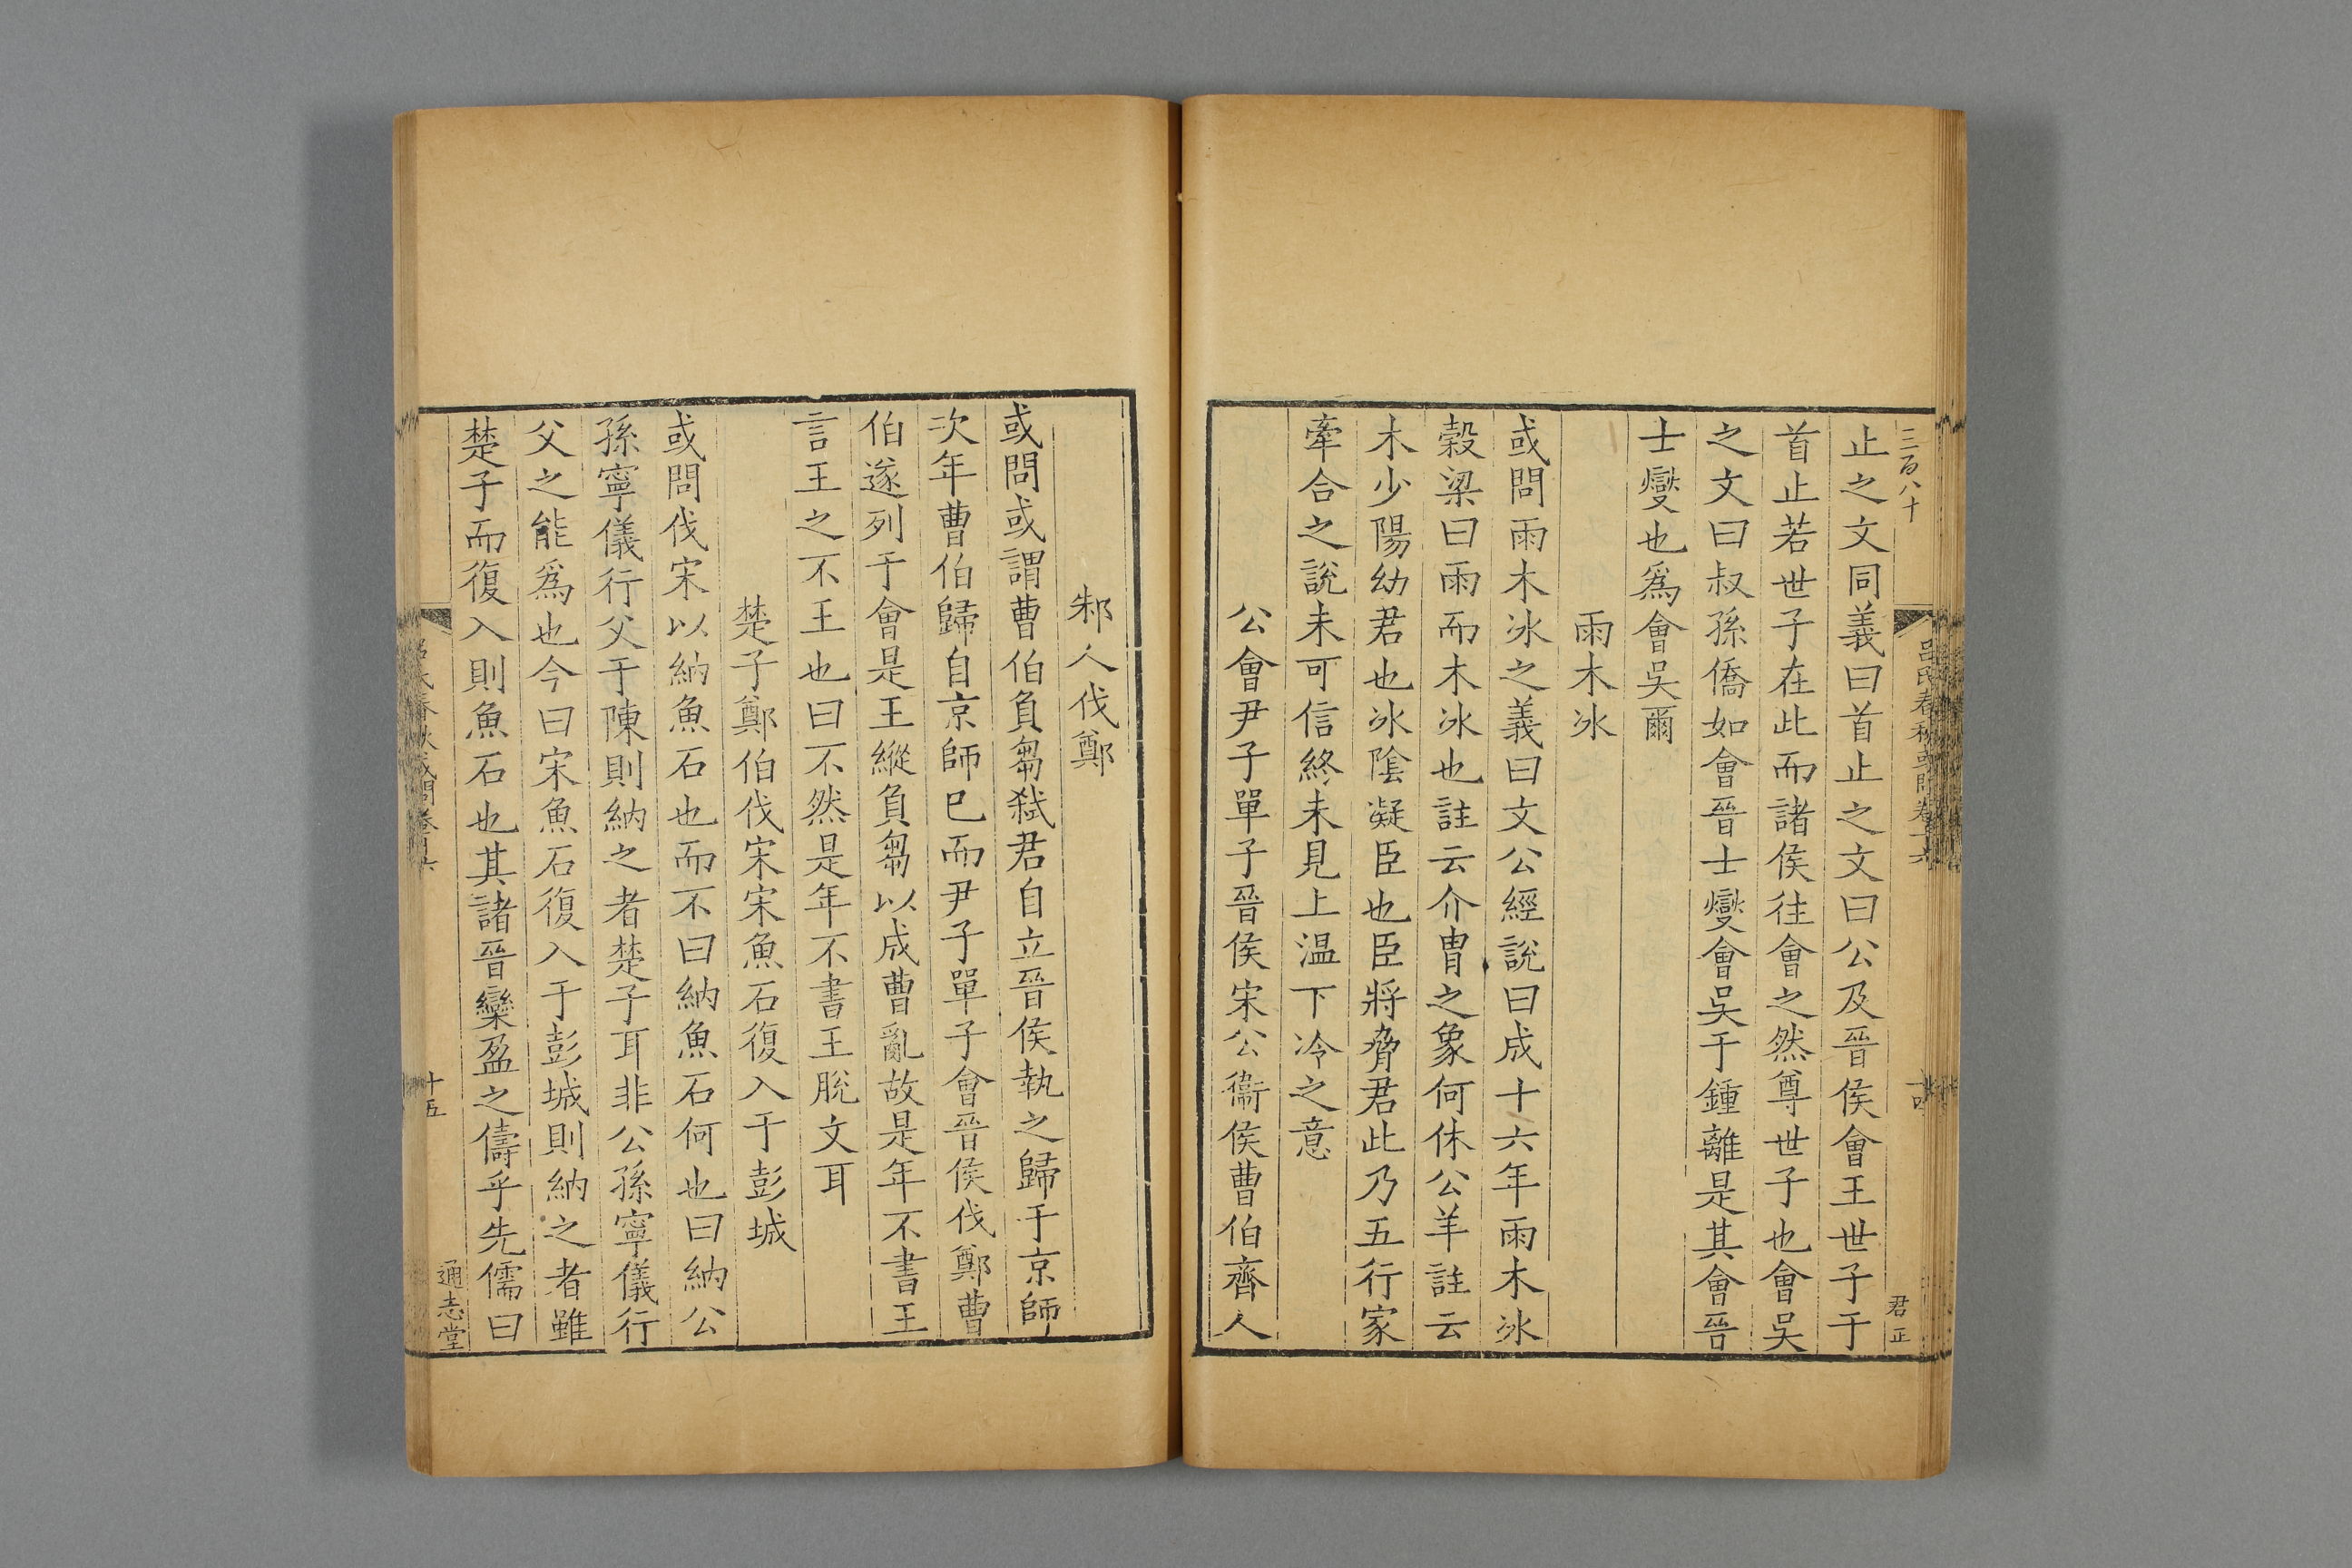 三百八十
呂氏春秋或問卷十六
君正
止之文同義曰首止之文曰公及晉侯會王世子于
首止若世子在此而諸侯往會之然尊世子也會吳
之文曰叔孫僑如會晉士燮會吳于鍾離是其會晉
士燮也爲會吳爾
雨木冰
或問雨木冰之義曰文公經說曰成十六年雨木冰
穀梁曰雨而木冰也註云介胄之象何休公羊註云
木少陽幼君也冰隂凝臣也臣將脅君此乃五行家
牽合之說未可信終未見上温下冷之意
公會尹子單子晉侯宋公衞侯曹伯齊人
邾人伐鄭
或問或謂曹伯負芻弑君自立晉侯執之歸于京師
次年曹伯歸自京師巳而尹子單子會晉侯伐鄭曹
伯遂列于會是王縱負芻以成曹亂故是年不書王
言王之不王也曰不然是年不書王脫文耳
楚子鄭伯伐宋宋魚石復入于彭城
或問伐宋以納魚石也而不曰納魚石何也曰納公
孫寧儀行父于陳則納之者楚子耳非公孫寧儀行
父之能爲也今曰宋魚石復入于彭城則納之者雖
楚子而復入則魚石也其諸晉欒盈之儔乎先儒曰
呂氏春秋或問卷十六
十五
通志堂